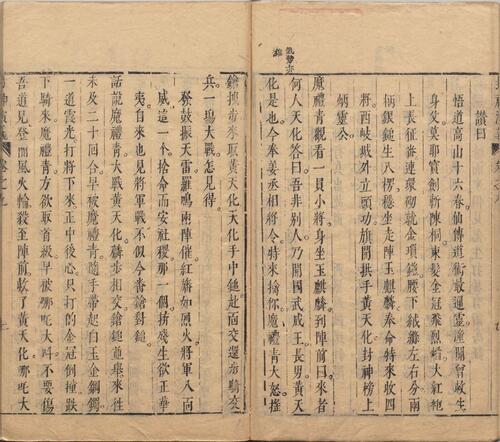 讚曰
悟道高山十六春。仙傳道術最通靈。潼關曾救生
身父。莫耶寶劍斬陳桐。束髮金冠飛烈焰。大紅袍
上長征番。連環砌就金項鎧。腰下絨縧左右分。兩
柄銀鎚生八楞。穩坐走陣玉麒麟。奉命特來收四
將。西岐城外立頭功。旗開拱手黃天化。封神榜上
炳靈公。
魔禮青觀看一員小將。身坐玉麒麟。到陣前曰。來者
何人。天化答曰。吾非別人。乃開國武成王長男黃天
氣勢亦
雄
化是也。今奉姜丞相將令。特來擒你。魔禮青大怒。搖
鎗拽步來取黃天化。天化手中鎚赴面交還。步騎交
兵。一場大戰。怎見得。
發鼓振天雷。羅鳴兩陣催。紅旛如烈火。將軍八面
威。這一個捨命而安社稷。那一個拚殘生欲正華
夷。自來也見將軍戰。不似今番鎗對鎚。
話說魔禮青大戰黃天化。麟步相交。鎗鎚並舉。來往
未及二十回合。早被魔禮青隨手帶起白玉金鋼鐲。
一道霞光。打將下來。正中後心。只打的金冠倒撞。跌
下騎來。魔禮青方欲取首級。早被哪吒大叫不要傷
吾道兄。登開風火輪。殺至陣前。救了黃天化。哪吒大